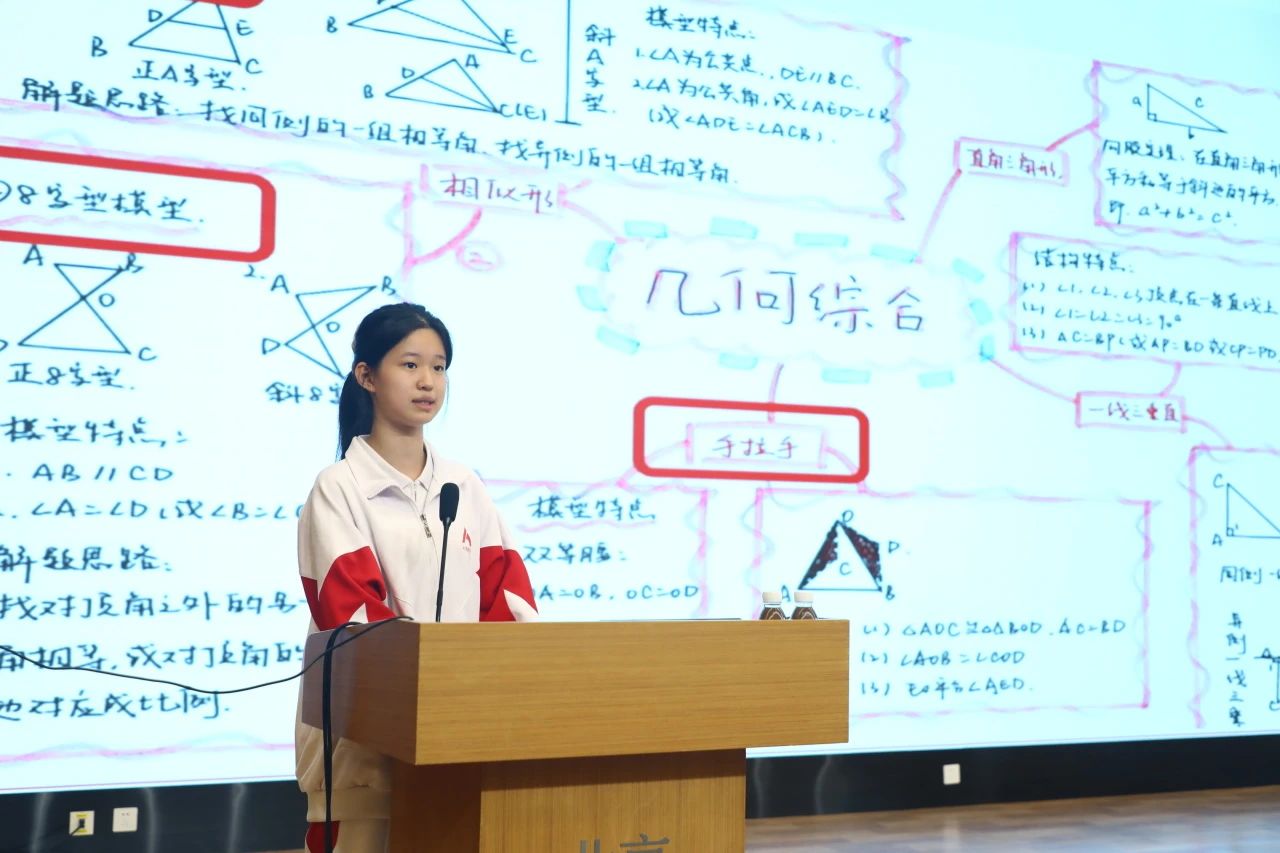 D
E
B
C
正A字型.
B
E
C
A
D
B
C(E)
斜
A
字
型.
模型特点:
1.∠A为公共点,, DE∥BC.
2.∠A为公共角,或∠AED=∠B
(或∠ADE=∠ACB).
解题思路:找同侧的一组相等角、找异侧的一组相等角.
8字型模型.
相似形
②
A
B
O
C
正8字型.
2.
A
B
O
D
斜8
模型特点:
AB∥CD
∠A=∠D,或∠B=∠C
解题思路:
找对顶角之外的另一
角相等,或对顶角的
对应成比例.
几何综合
直角三角形.
a
c
b
勾股定理,在直角三角形
平方和等于斜边的平方.
即. a²+b²=c².
结构特点:
(1) ∠1、∠2、∠3顶点在一条直线上
(2) ∠1=∠2=∠3=90°
(3) AC=BP(或AP=BD或CP=PD
一线三垂直
C
A
同侧一
异
侧
一
线
三
垂
手拉手
模型特点
双等腰:
OA=OB, OC=OD
O
D
C
A
B
(1) △AOC≌△BOD, AC=BD
(2) ∠AOB=∠COD
(3) EO平分∠AED.